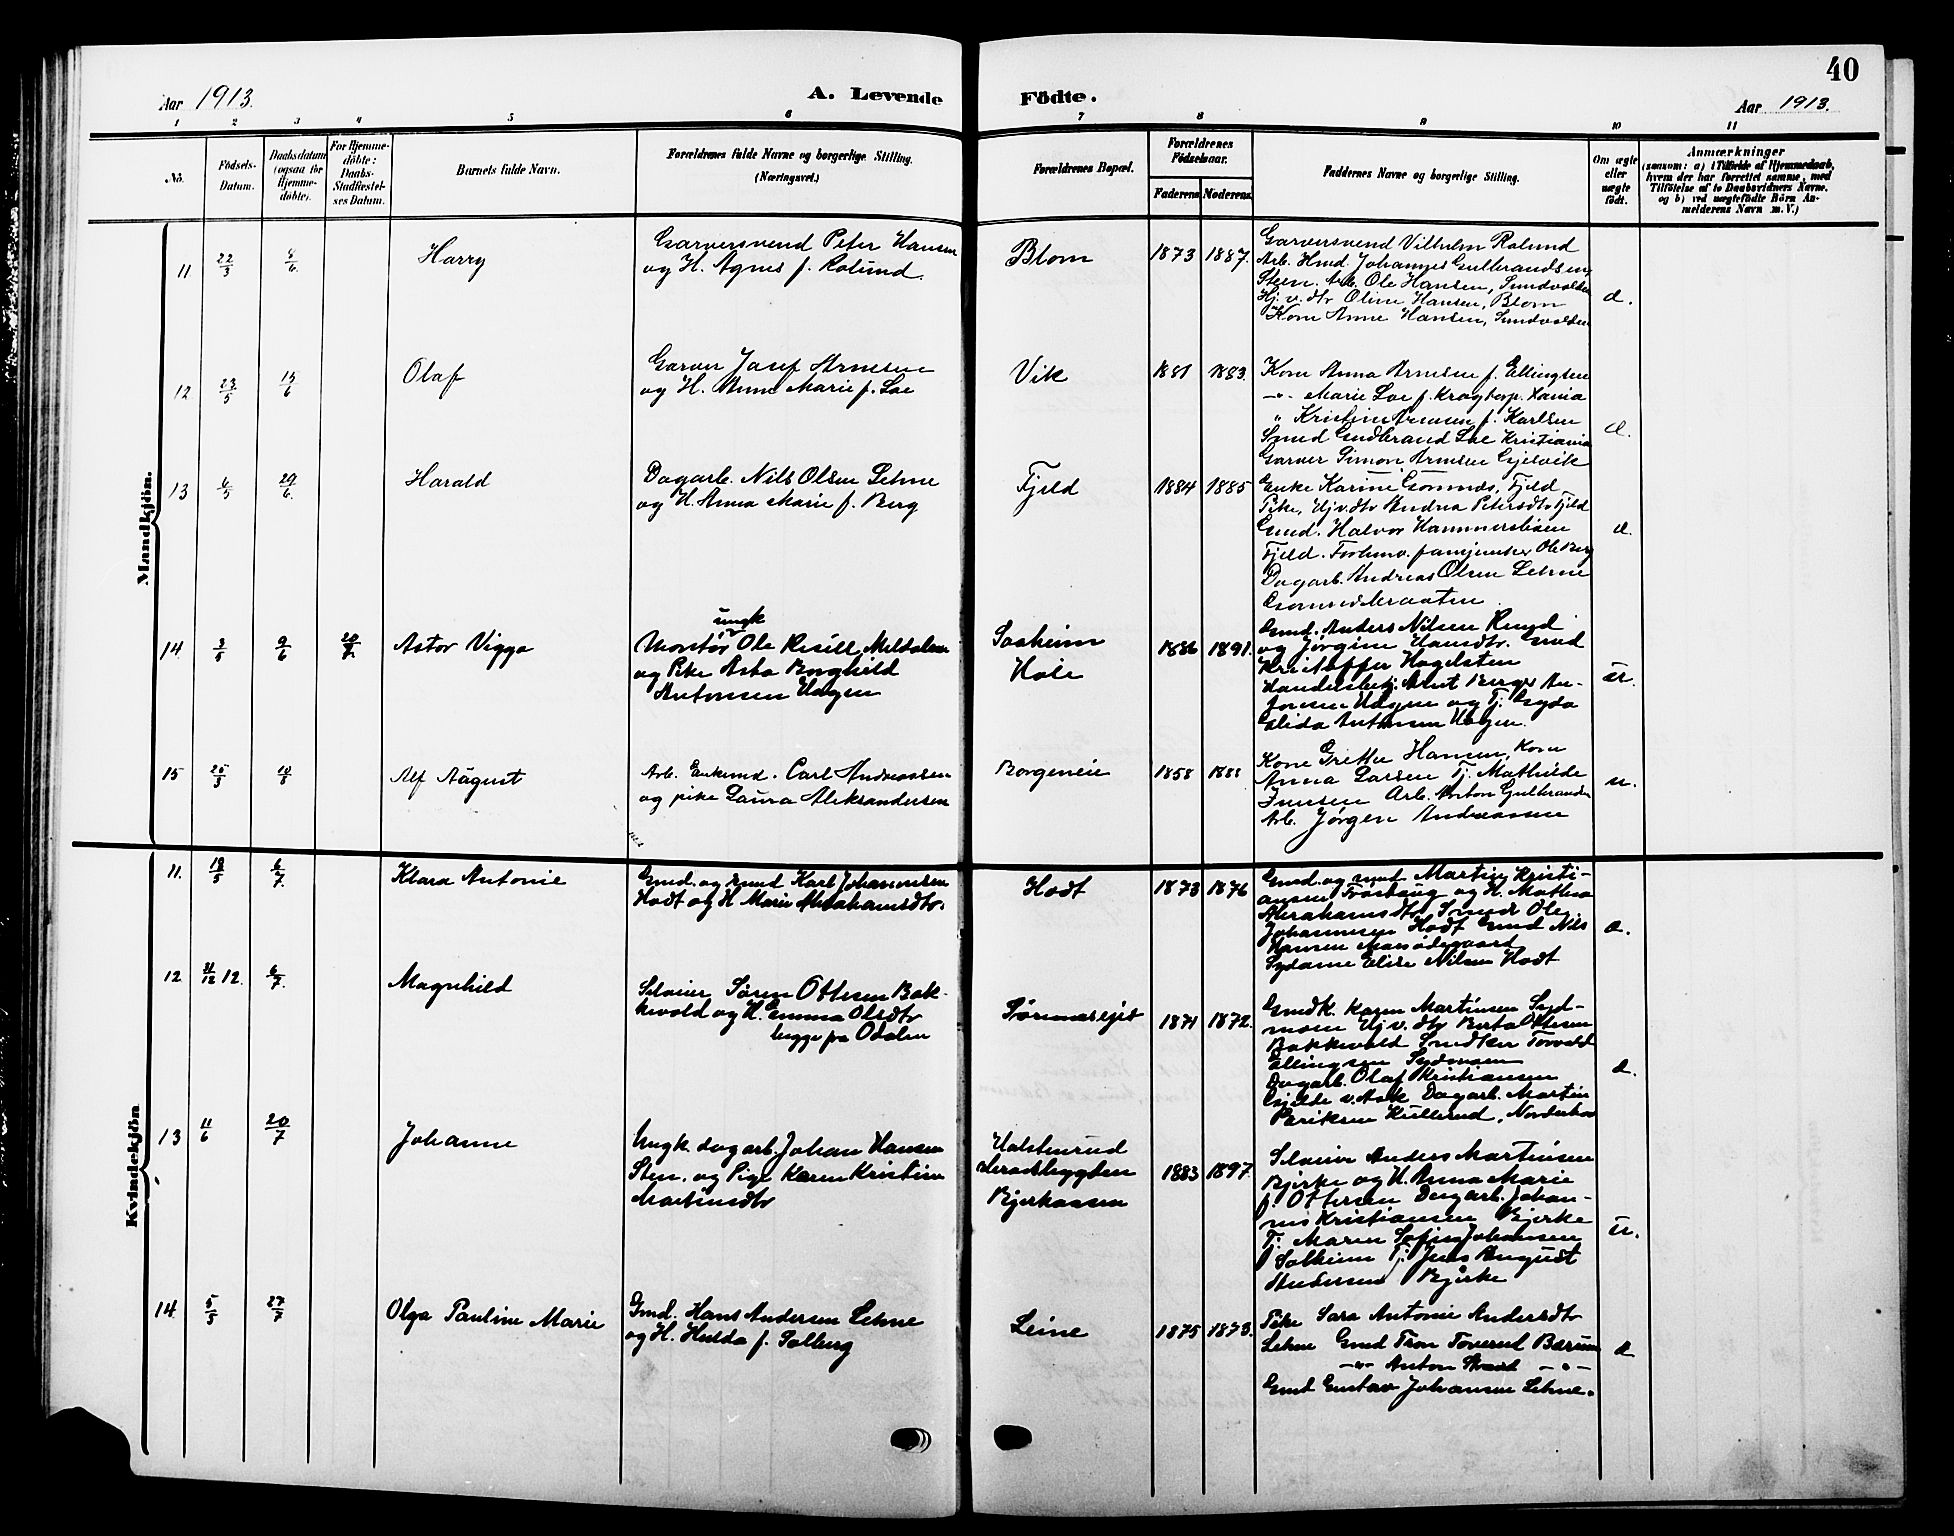 40
Aar 1913.
A. Levende Födte.
Aar 1913.
1 2 3 4 5 6 7 8 9 10 11
No.
Födsels-
Datum.
Daabsdatum
(ogsaa for
Hjemme-
döbte).
For Hjemme-
döbte:
Daabs-
Stadfæstel-
ses Datum.
Barnets fulde Navn.
Forældrenes fulde Navne og borgerlige Stilling.
(Næringsvei.)
Forældrenes Bopæl.
Forældrenes
Födselsaar.
Faderens Moderens
Faddernes Navne og borgerlige Stilling.
Om ægte
eller
uægte
födt.
Anmærkninger
(saasom: a) i Tilfælde af Hjemmedaab,
hvem der har forrettet samme, med
Tilföielse af to Daabsvidners Navne.
og b) ved uægtefödte Börn An-
melderens Navn m. V.)
Mandkjön.
11 22/3 8/6 Harry
Garversvend Peter Hansen
og H. Agnes f. Rolund.
Blom 1873 1887.
Garversvend Vilhelm Rolund
Arb. Hmd. Johannes Gulbrandsen,
Steen. Arb. Ole Hansen, Sundvolden
Hj. v. dtr Oline Hansen, Blom
Kone Anne Hansen, Sundvolden
12 23/5 15/6 Olaf
Garver Josef Arnesen
og H. Anna Marie f. Loe
Vik 1881 1883.
Kone Anna Arnesen f. Ellingsen
-"- Marie Loe f. Kragberg. Xania
" Kristine Arnesen f. Karlsen
Smed Gudbrand Loe Kristiania
Garver Simon Arnesen Gjelvik
13 6/5 29/6 Harald
Dagarb. Nils Olsen Lehne
og H. Anna Marie f. Berg
Fjeld 1884 1885
Enke Karine Fjeld
Pike, Hjv. dtr Andrea Petersdtr Fjeld
Gmd. Halvor
Fjeld. Ole Berg
Dagarb. Andreas Olsen Lehne
14 3/5 9/6 Astor Viggo
ungk
Montør Ole Meldalen
og Pike Asta Borghild
Antonsen Hagen
Hole 1886 1891.
Gmd. Anders Nilsen Rud
og Jørgine Hansdtr. Gmd
Kristoffer Hagelsten
Handelsbetj. Arnt Berger An-
tonsen Hagen og Tj. Gyda
Elida Antonsen Hagen.
15 25/3 Alf August
Arb. Enkemd. Carl Andreassen
og pike Laura Aleksandersen
Borgeneie 1858
Kone Grethe Hansen, Kone
Anna Larsen Tj. Mathilde
Arb. Gulbrandsen
Arb. Jørgen Andreassen
Kvindekjön
11. 18/5 6/7. Klara Antonie
Gmd. og smed Karl Johannesen
Hodt og H. Marie Abrahamsdtr.
Hodt 1873 1876
Gmd. og smed Martin Kristi-
ansen Frøshaug og H. Mathea
Abrahamsdtr Smed Ole
Johannesen Hodt Gmd Nils
Hansen
Sydame Elise Nilsen Hodt
12 31/12 12. 6/7. Magnhild
Sleier Søren Ottesen Bak-
kevold og H. Emma Olsdtr
begge fra Odalen
1871 1872.
Gmdk. Karen Martinsen Syd-
moen Hj v. dtr Berta Ottesen
Bakkevold Torvald
Ellingsen Sydmoen
Dagarb. Olaf Kristiansen
Gjelde v. Ask Dagarb. Martin
Eriksen Kullerud, Norderhov
13 11/6 20/7 Johanne
Ungk. dagarb. Johan Hansen
Sten. og Pige Karen Kristine
Martinsdtr
Halstenrud
Aadsbygden
Bjerkaasen
1883 1897.
Anders Martinsen
Bjerke og H. Anna Marie
f. Ottersen Dagarb. Johan-
nes Kristiansen Bjerke
T. Maren Sofie Johansen
Solheim Tj. Jens August
Andersen Bjerke
14. 5/5 27/7 Olga Pauline Marie
Gmd. Hans Andersen Lehne
og H. Hulda f. Solberg
Leine 1875 1873.
Pike Sara Antonie Andersdtr
Lehne Gmd Tron Toverud Bærum
-"- Anton -"-
Gmd Gustav Johansen Lehne.